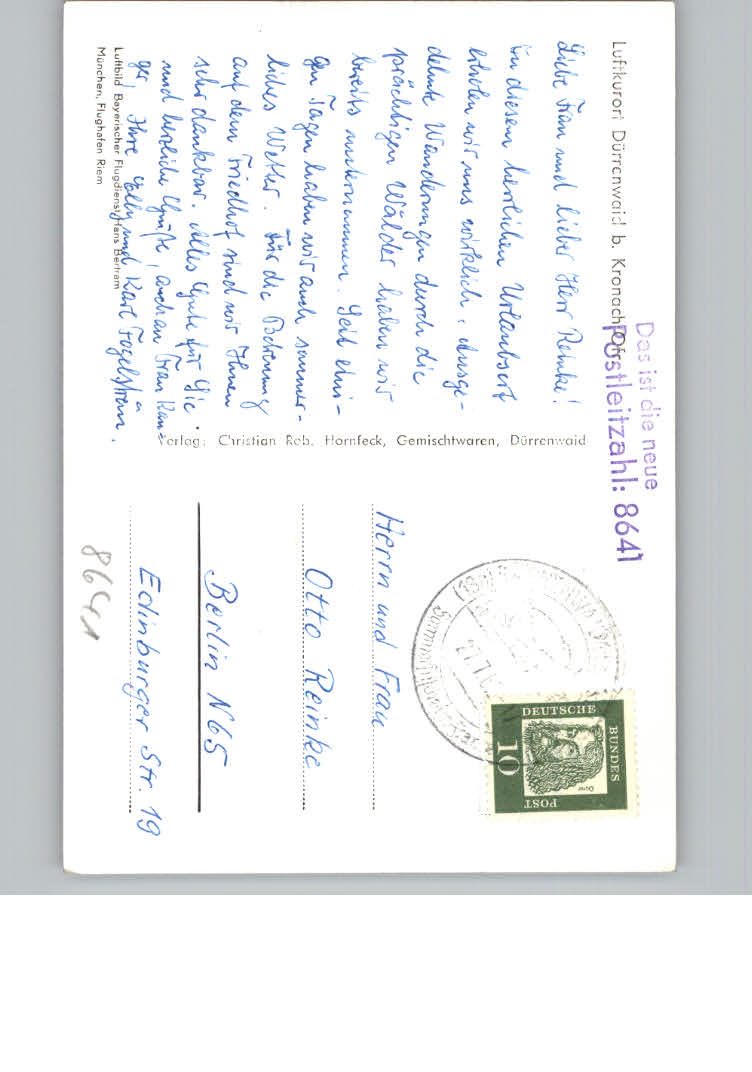 Luftkurort Dürrenwaid b. Kronach/Ofr.
Das ist die neue
Postleitzahl: 8641
Liebe Frau und lieber Herr Reinke!
In diesem herrlichen Urlaubsort
erholen wir uns wirklich. Ausge-
dehnte Wanderungen durch die
prächtigen Wälder haben wir
bereits unternommen. Seit eini-
gen Tagen haben wir auch sommer-
liches Wetter. Für die
auf dem Friedhof sind wir Ihnen
sehr dankbar. Alles Gute für Sie
und herzliche Grüße, auch an Frau
Ihre und Karl
Luftbild Bayerischer Flugdienst Hans Bertram
München, Flughafen Riem
Verlag: Christian Rob. Hornfeck, Gemischtwaren, Dürrenwaid
DEUTSCHE
BUNDES
POST
10
Dürer
Herrn und Frau
Otto Reinke
Berlin N65
Edinburger Str. 19
8641